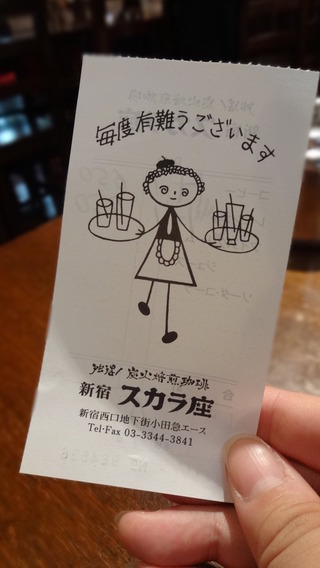 毎度有難うございます
強猛! 炭火焙煎珈琲
新宿 スカラ座
新宿西口地下街小田急エース
Tel·Fax 03-3344-3841